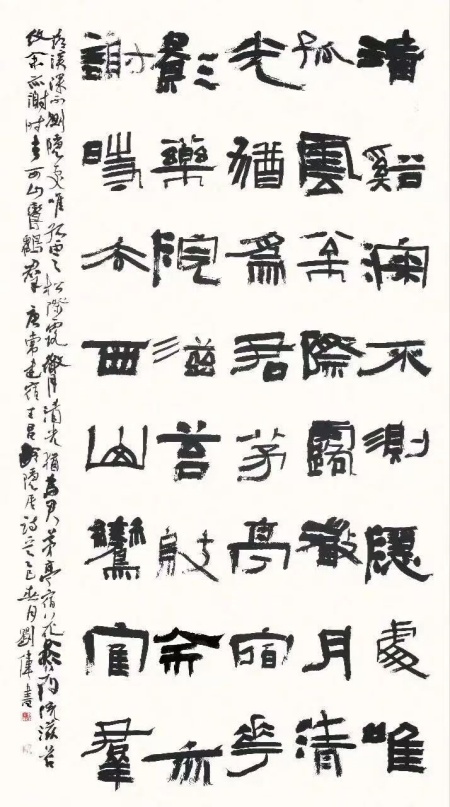 清谿深不測隱處唯
孤雲枩際露微月清
光猶為君茅亭宿花
影藥院滋苔紋余亦
謝時去西山鸞鶴羣
清溪深不測隱處唯孤雲松際露微月清光猶為君茅亭宿花影藥院滋苔
紋余亦謝時去西山鸞鶴羣 唐常建宿王昌齡隱居詩乙巳春月劉偉書